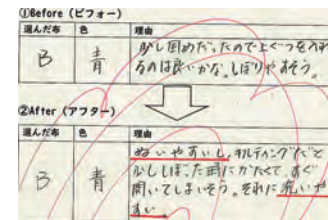 ①Before（ビフォー）
選んだ布 色 理由
B 青 少し固めだったので上ぐつを入れ
るのは良いかな。しぼりやすそう。
②After（アフター）
選んだ布 色 理由
B 青 ぬいやすいし、キルティングだと
少ししぼった
開いてしまいそう。それに洗いや
すい